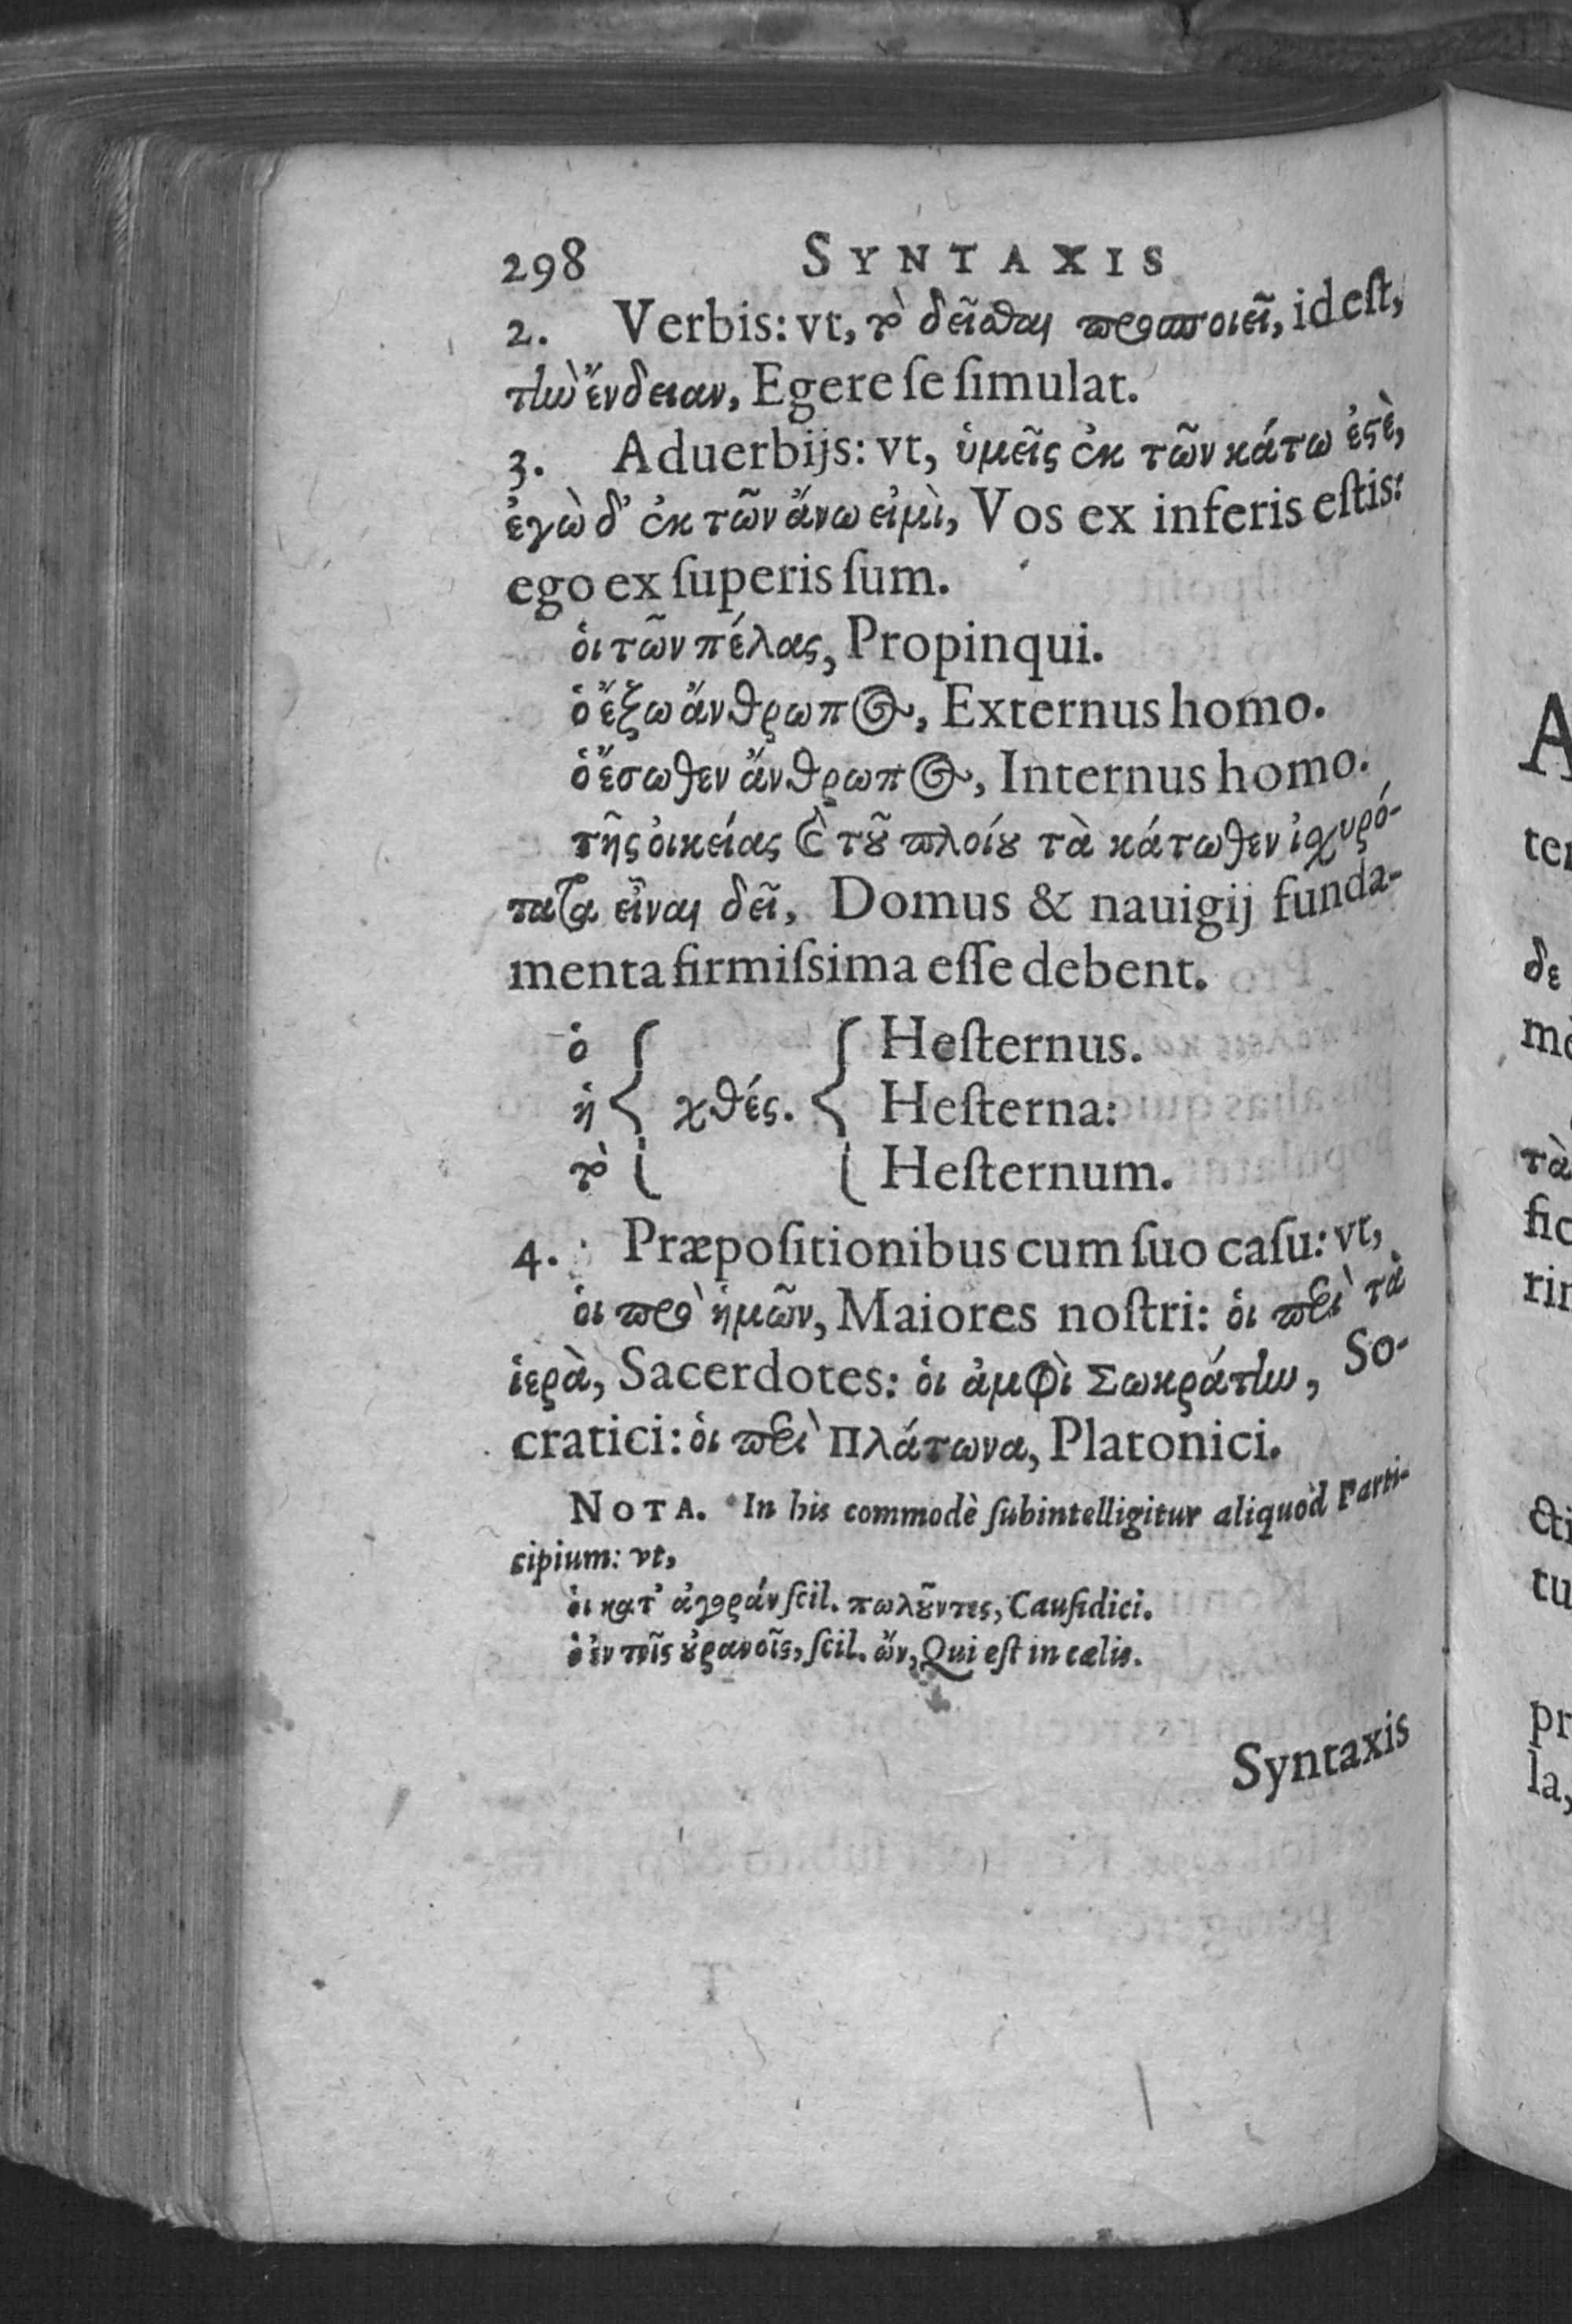 298 SYNTAXIS
2. Verbis: vt, τὸ δεῖσθαι προσποιεῖ, id eſt,
τὴν ἔνδειαν, Egere ſe ſimulat.
3. Aduerbijs: vt, ὑμεῖς ἐκ τῶν κάτω ἐστὲ,
ἐγὼ δ' ἐκ τῶν ἄνω εἰμὶ, Vos ex inferis eſtis:
ego ex ſuperis ſum.
ὁι τῶν πέλας, Propinqui.
ὁ ἔξω ἄνθρωπος, Externus homo.
ὁ ἔσωθεν ἄνθρωπος, Internus homo.
τῆς ὀικείας καὶ τοῦ πλοίου τὰ κάτωθεν ἰσχυρό-
τατα εἶναι δεῖ, Domus & nauigij funda-
menta firmiſsima eſſe debent.
ὁ Heſternus.
ἡ χθές. Heſterna:
τὸ Heſternum.
4. Præpoſitionibus cum ſuo caſu: vt,
ὁι πρὸ ἡμῶν, Maiores noſtri: ὁι περὶ τὰ
ἱερὰ, Sacerdotes: ὁι ἀμφὶ Σωκράτην, So-
cratici: ὁι περὶ Πλάτωνα, Platonici.
NOTA. In his commodè ſubintelligitur aliquod Parti-
cipium: vt,
ὁι κατ' ἀγορὰν ſcil. πωλοῦντες, Cauſidici.
ὁ ἐν τοῖς οὐρανοῖς, ſcil. ὤν, Qui eſt in cælis.
Syntaxis